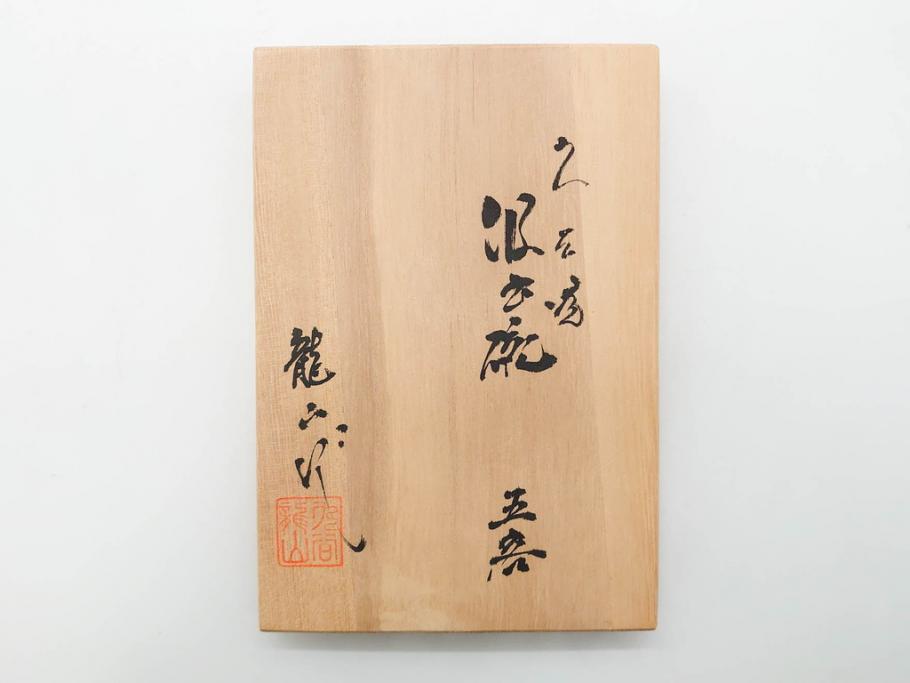 九谷焼
汲出碗 五客
龍山作
九谷
龍山